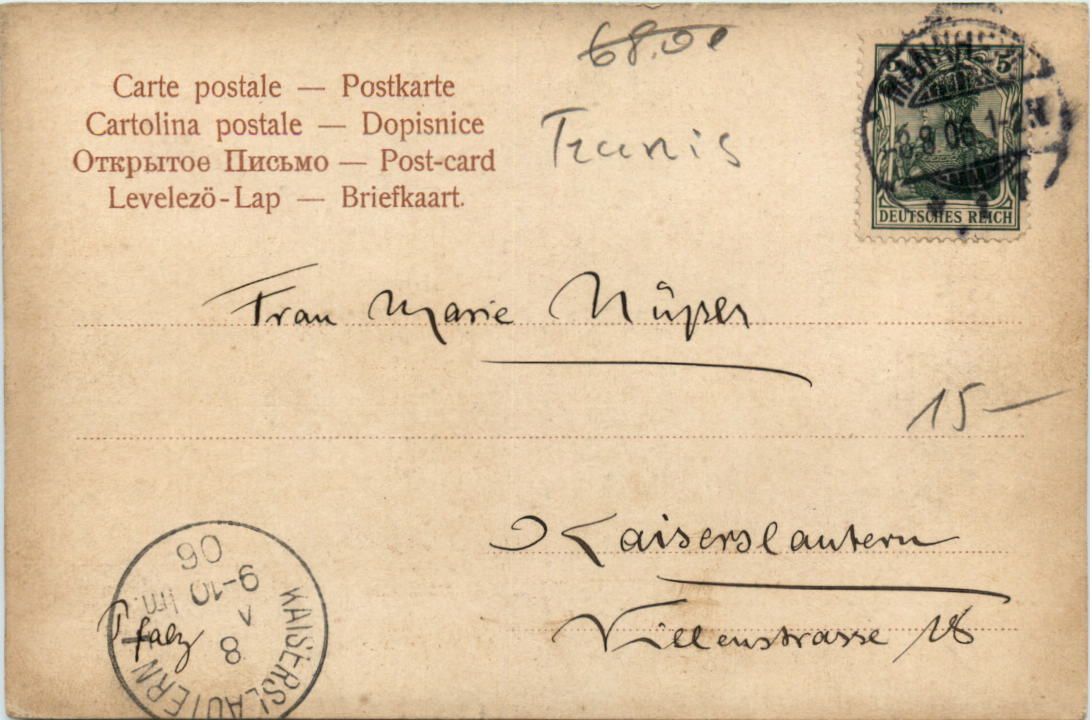 68.00
Carte postale — Postkarte
Cartolina postale — Dopisnice
Открытое Письмо — Post-card
Levelezö-Lap — Briefkaart.
5
DEUTSCHES REICH
Frau Marie
15-
Kaiserslautern
Villenstrasse 18
Pfalz
KAISERSLAUTERN
8
V
9-10
06